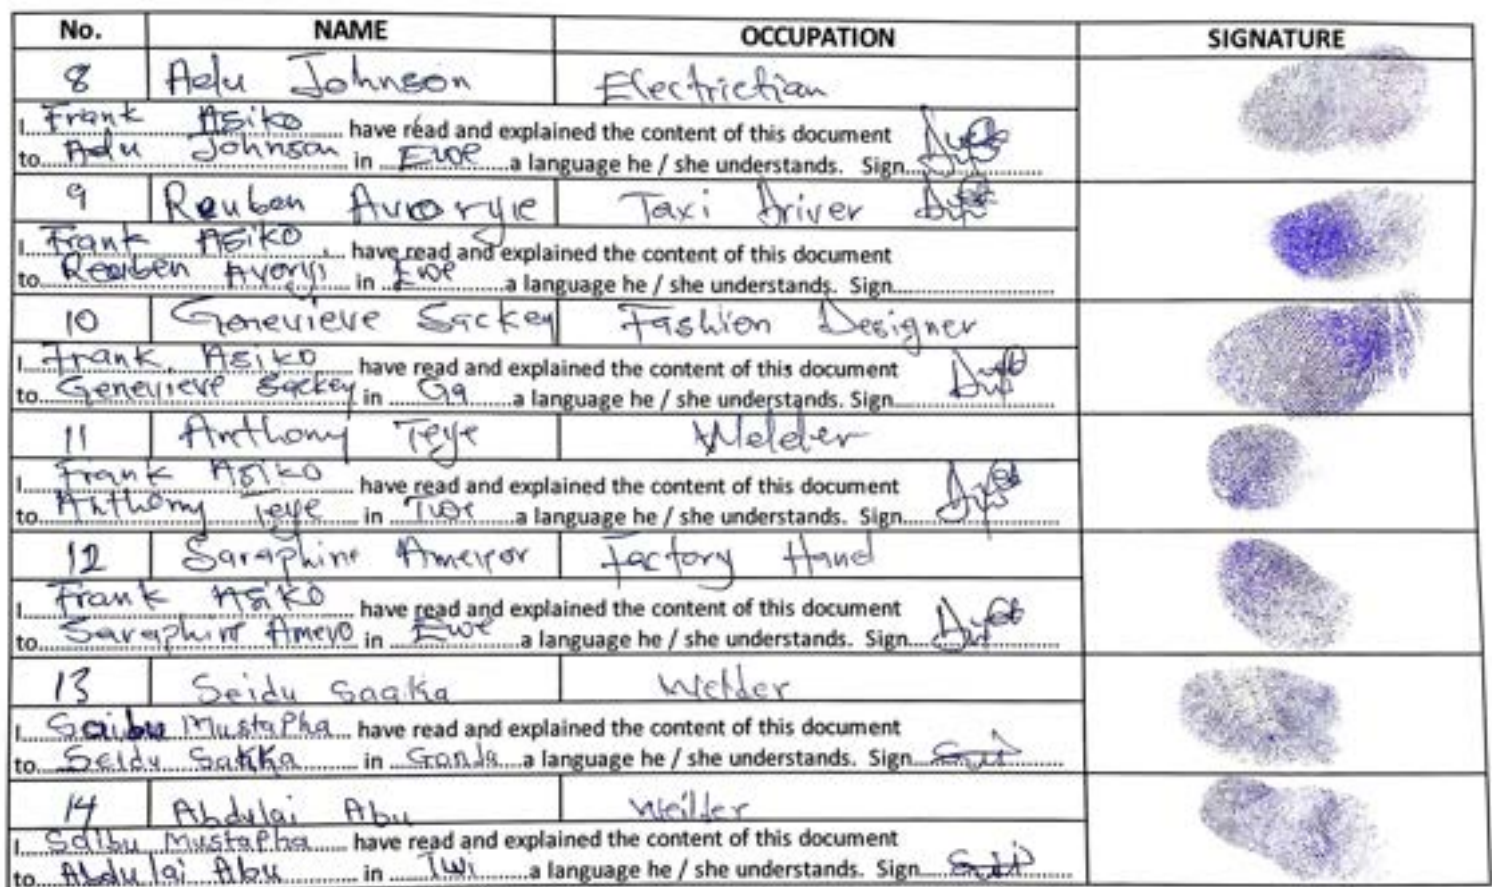 No. NAME OCCUPATION SIGNATURE
8 Adu Johnson Electrictian
I Frank Asiko have read and explained the content of this document
to Adu Johnson in Ewe a language he / she understands. Sign
9 Reuben Taxi Driver
I Frank Asiko have read and explained the content of this document
to Reuben Avoryi in Ewe a language he / she understands. Sign
10 Genevieve Sackey Fashion Designer
I Frank Asiko have read and explained the content of this document
to Genevieve Sackey in Ga a language he / she understands. Sign
11 Anthony Teye Welder
I Frank Asiko have read and explained the content of this document
to Anthony Teye in a language he / she understands. Sign
12 Saraphine Factory Hand
I Frank Asiko have read and explained the content of this document
to Saraphine Amevo in Ewe a language he / she understands. Sign
13 Seidu Saaka Welder
I Saibu Mustapha have read and explained the content of this document
to Seidu Sakka in a language he / she understands. Sign
14 Abdulai Abu Weilder
I Saibu Mustapha have read and explained the content of this document
to Abdulai Abu in Twi a language he / she understands. Sign